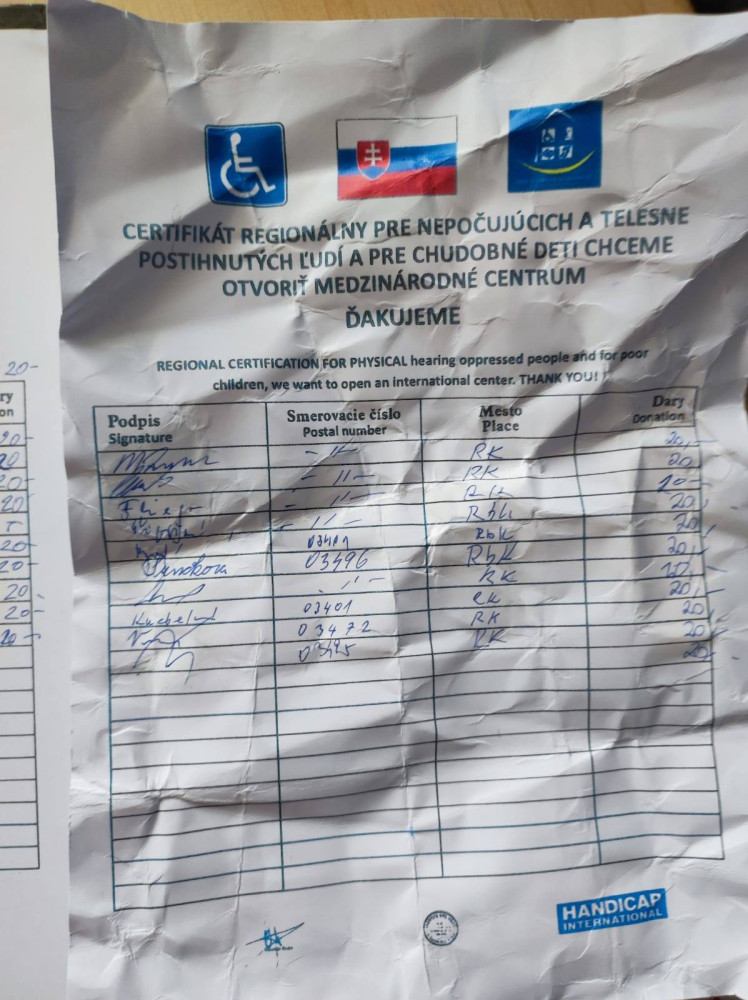 CERTIFIKÁT REGIONÁLNY PRE NEPOČUJÚCICH A TELESNE
POSTIHNUTÝCH ĽUDÍ A PRE CHUDOBNÉ DETI CHCEME
OTVORIŤ MEDZINÁRODNÉ CENTRUM
ĎAKUJEME
REGIONAL CERTIFICATION FOR PHYSICAL hearing oppressed people and for poor
children, we want to open an international center. THANK YOU!
Podpis Smerovacie číslo Mesto Dary
Signature Postal number Place Donation
-"- RK 20,-
-"- RK 20,
-"- RK 20-
-"- Rbk 20,
03401 Rbk 20,
03496 RbK 20,
-"- RK
03401 RK 20,
Kuchel 03472 RK 20
RK 20,
HANDICAP
INTERNATIONAL
20-
ry
on
20-
20
20-
20
T
20-
20-
20
20-
20-